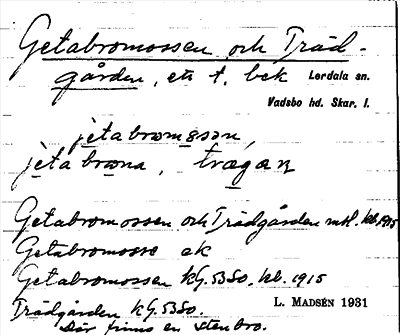 Getabromossen och Träd-
gården, ets t. bck Lerdala sn.
Vadsbo hd. Skar. l.
jetabromɵsən
jeta brɷna, trægaɳ
Getabromossen och Trädgården mtl. kb. 1915
Getabromosse ek
Getabromossen kG. 53So. kb. 1915
Trädgården kG. 53So. L. MADSÉN 1931
Där finns en stenbro.